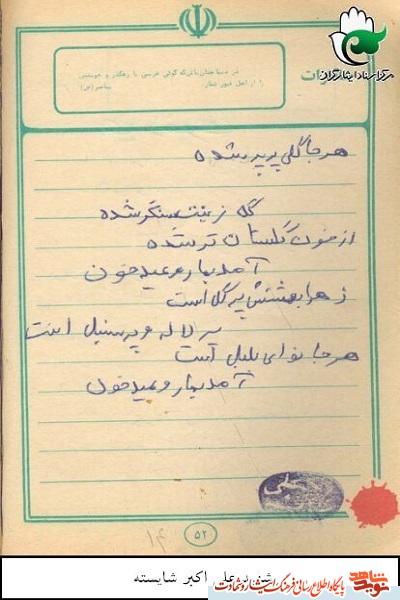 مرکز اسناد ایثارگران
در دنیا چنان باش که گوئی غریبی یا رهگذر و خویشتن
را از اهل قبور شمار.
پیامبر(ص)
هر جا گلی پرپر شده
گل زینت سنگر شده
از خون گلستان تر شده
آمد بهار و عید خون
زهرا بهشتش پر گل است
پر لاله و پر سنبل است
هر جا نوای بلبل است
آمد بهار و عید خون
۵۲
۱۴
شهید علی اکبر شایسته
نوید شاهد
پایگاه اطلاع رسانی فرهنگ ایثار و شهادت